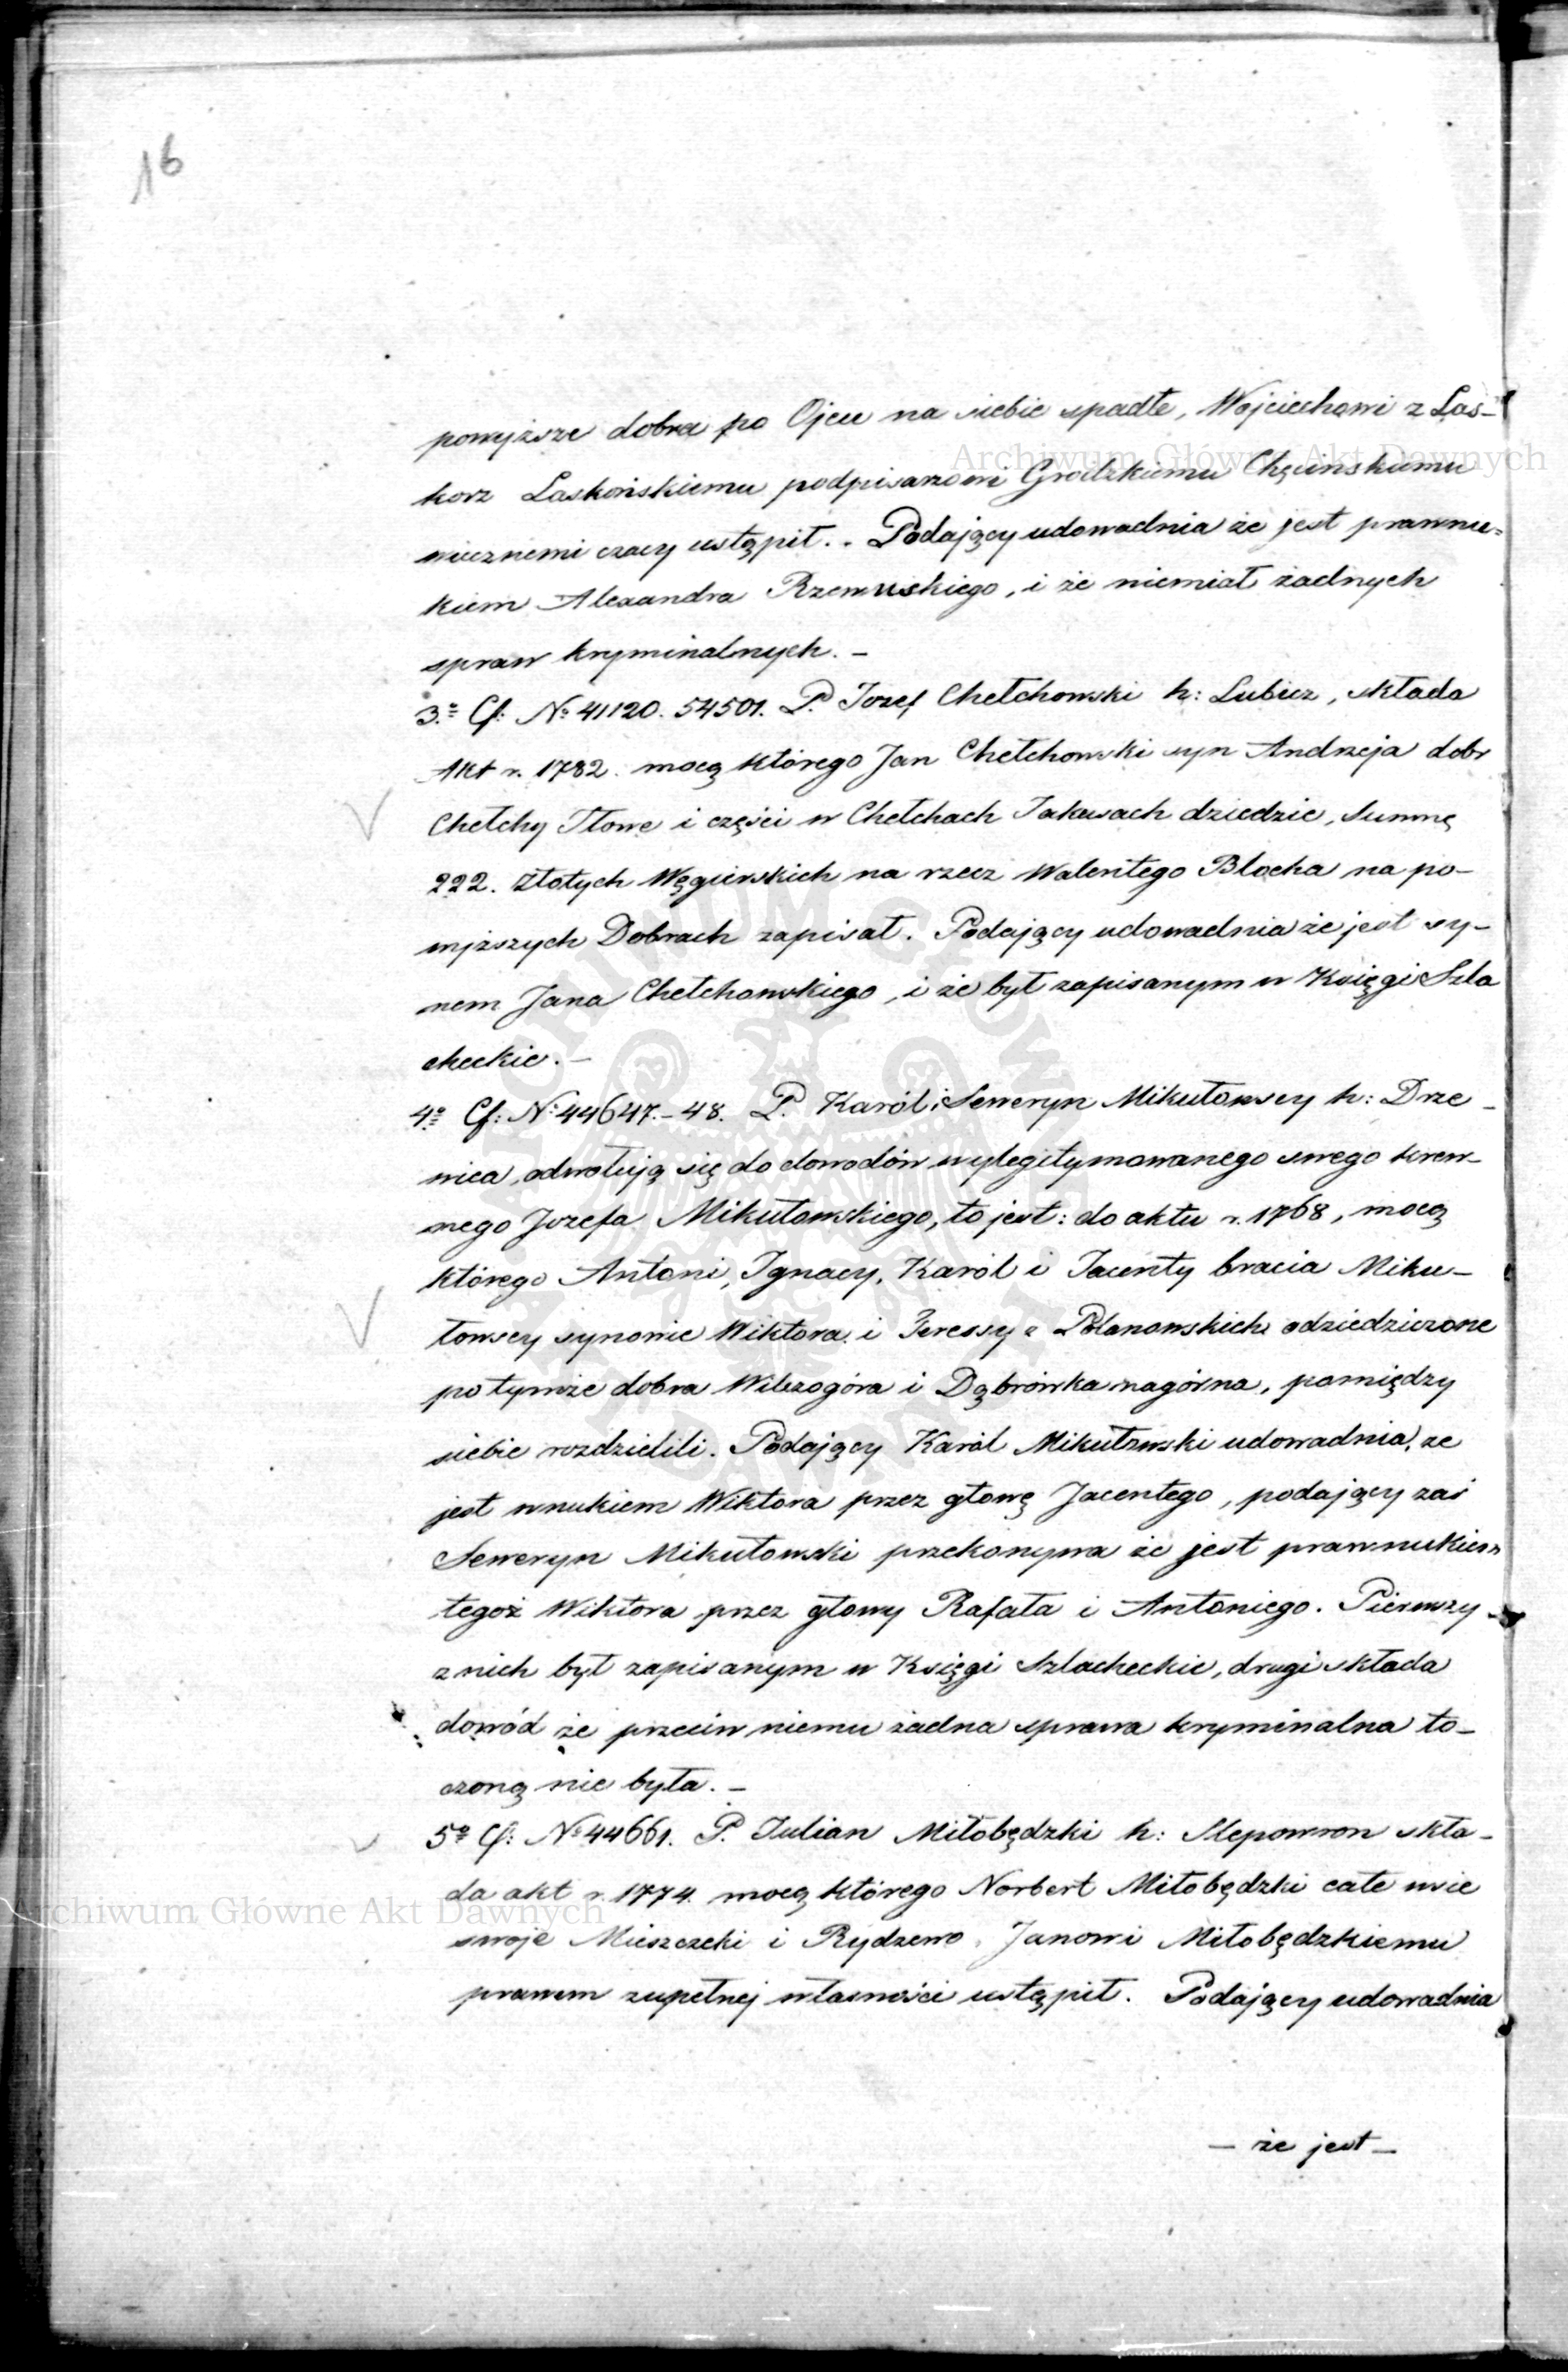 16
powyższe dobra po Ojcu na siebie spadłe, Wojciechowi z Las-
korz Laskońskiemu podpisarzowi Grodzkiemu Chęcińskiemu
wiecznemi czasy ustąpił. - Podający udowadnia że jest prawnu=
kiem Alexandra Rzewuskiego, i że niemiał żadnych
spraw kryminalnych. -
3.º Cf: Nº 41120. 54501. P. Jozef Chełchowski h: Lubicz, składa
Akt r. 1782. mocą którego Jan Chełchowski syn Andrzeja dobr
Chełchy Iłowe i części w Chełchach Jakusach dziedzic, Summę
222. złotych Węgierskich na rzecz Walentego Blocha na po-
wyższych Dobrach zapisał. Podający udowadnia że jest sy-
nem Jana Chełchowskiego, i że był zapisanym w Księgi Szla
checkie. -
4.º Cf: Nº 44647.-48. P. Karól i Seweryn Mikułowscy h: Drze-
wica, odwołują się do dowodów wylegitymowanego swego krew-
nego Jozefa Mikułowskiego, to jest: do aktu r. 1768, mocą
którego Antoni, Ignacy, Karól i Jacenty bracia Miku-
łowscy synowie Wiktora i Teressy z Polanowskich odziedziczone
po tymże dobra Wilczogóra i Dąbrówka nagórna, pomiędzy
siebie rozdzielili. Podający Karól Mikułowski udowadnia, że
jest wnukiem Wiktora przez głowę Jacentego, podający zaś
Seweryn Mikułowski przekonywa że jest prawnukiem
tegoż Wiktora przez głowy Rafała i Antoniego. Pierwszy
z nich był zapisanym w Księgi Szlacheckie, drugi składa
dowód że przeciw niemu żadna sprawa kryminalna to-
czoną nie była. -
5º Cf: Nº 44661. P. Julian Miłobędzki h: Slepowron skła-
da akt r. 1774. mocą którego Norbert Miłobędzki całe wsie
swoje Mieszczki i Rydzewo, Janowi Miłobędzkiemu
prawem zupełnej własności ustąpił. Podający udowadnia
- że jest -
Archiwum Główne Akt Dawnych
Archiwum Główne Akt Dawnych
ARCHIWUM GŁÓWNE AKT DAWNYCH